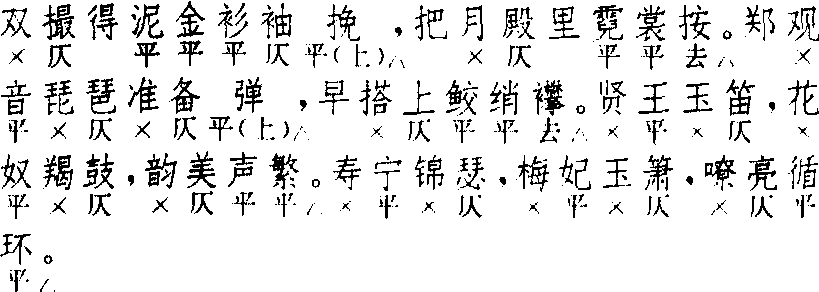 双撮得泥金衫袖挽，把月殿里霓裳按。郑观
× 仄 平 平 平 仄 平(上)△ × 仄 平 平 去△ ×
音琵琶准备弹，早搭上鲛绡襻。贤王玉笛，花
平 × 仄 × 仄 平(上)△ × 仄 平 平 去△ × 平 × 仄 ×
奴羯鼓，韵美声繁。寿宁锦瑟，梅妃玉箫，嘹亮循
平 × 仄 × 仄 平 平△ × 平 × 仄 × 平 × 仄 × 仄 平
环。
平△